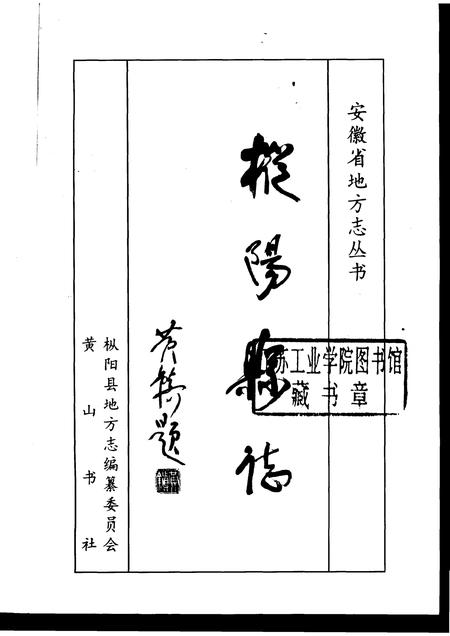 安徽省地方志丛书
樅陽縣志
黄镇题
枞阳县地方志编纂委员会
黄山书社
苏工业学院图书馆
藏书章